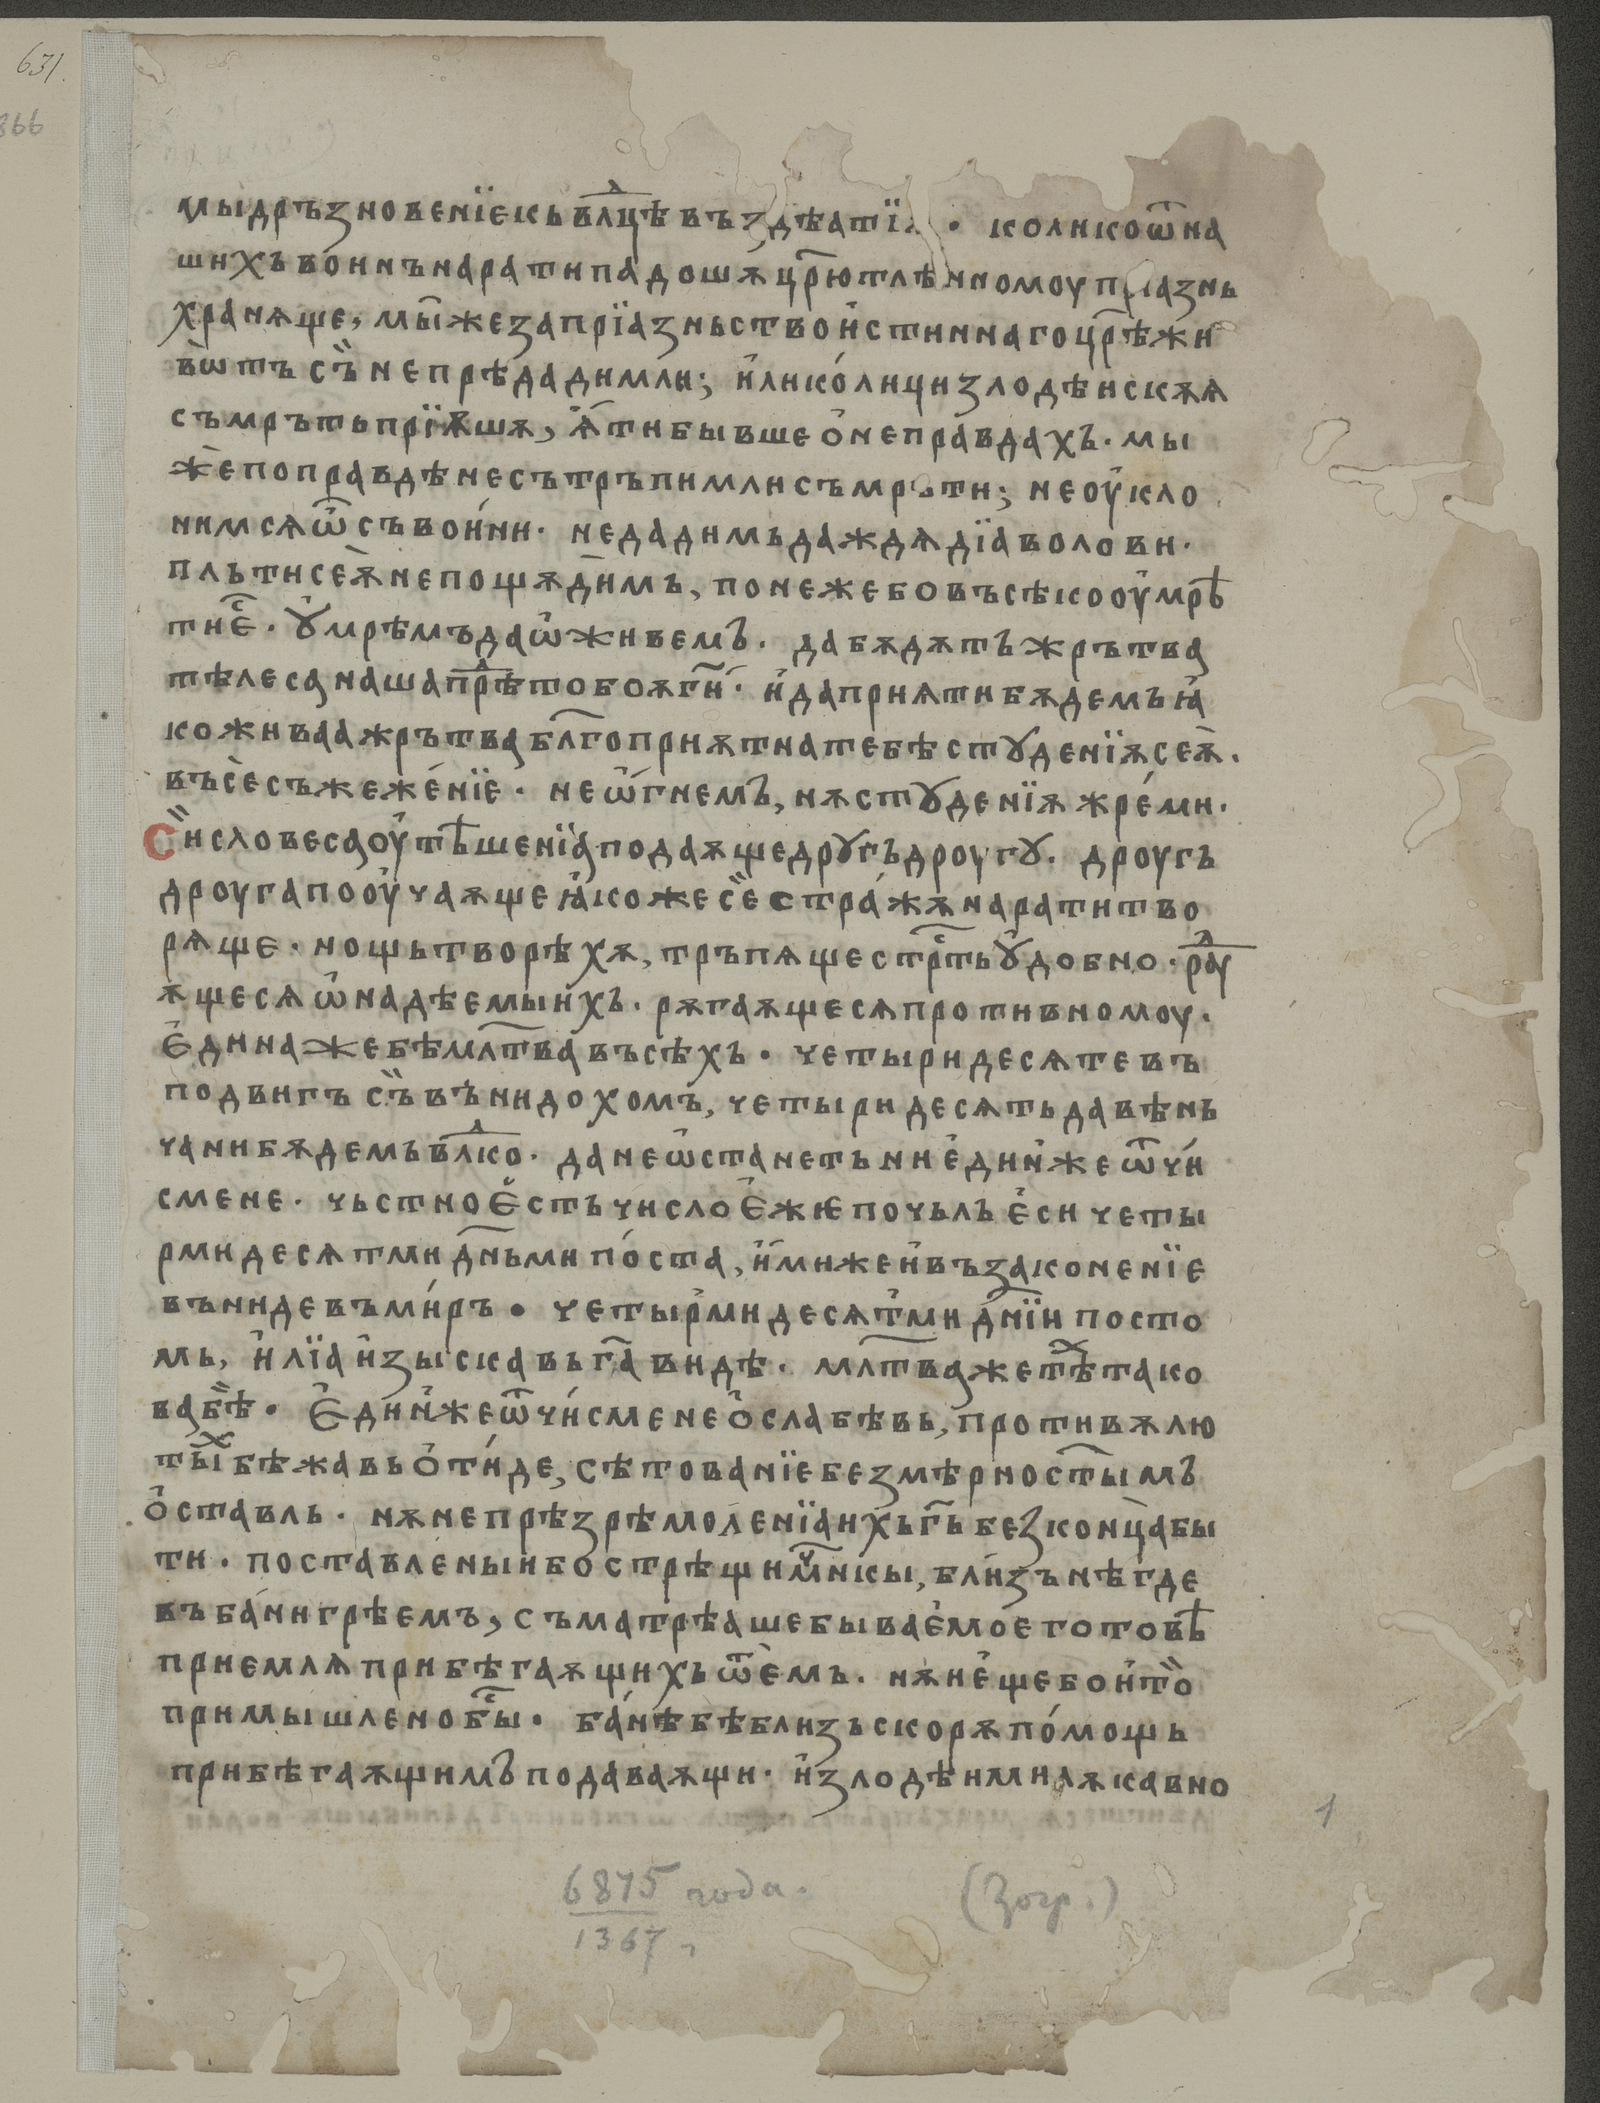 631.
866
мыдръзновенїекьвлⷣцѣвъздѣатї · коликоѿна
шихъвоинънаратипадошѫцр҃ютлѣнномоупрїазнь
хранѧще, мы҆жезапрїазньствои҆стиннагоцр҃ѣжи
вѡтъ съ̏ непрѣдадимли; и҆ликолициизлодѣискѫѧ
съмрътьпрїѫшѧ, ѧ҆тибывшео҆неправдахъ. мы
жепоправдѣнесътръпимлисъмръти; неоу҆кло
нимсѧѿсъвои́ни· недадимъдаждѧдїаволови·
плътисеѧ̀непощѧдимъ, понежебовъсѣкооу҆мрѣ
тиеⷭ҇. ꙋ҆мрѣмъдаѡ҆живемъ. дабѫдѫтъжрътва
тѣлесанашапрⷣѣтобоѧг҃и. и҆даприѧтибѫдемъꙗ҆
коживаажрътвабл҃гоприѫтнатебѣстꙋденїѧсеѧ̀.
въсесъжеже́нїе· неѡ҆гнемъ, нѫстꙋденїѧжре́ми·
С̏ исловесаоу҆тѣшенїаподаѫщедрꙋгъдроугꙋ. дроугъ
дроугапооу҆чаѫщеꙗ҆коже се̏ стра́жѫнаратитво
рѧще· нощьтворѣхѫ, тръпѧщестрⷭ҇тьꙋ҆добно· раⷣꙋ
ѫщесѧѡ҆надѣемыи҆хъ. рѫгаѫщесѧпротивномоу.
Е҆динажебѣмл҃твавъсѣхъ· четыридесѧтевъ
подвигъ съ̏ вънидохомъ, четыридесѧтьдавѣнь
чанибѫдемъвлⷣко· данеѡ҆станетъние҆дин҆жеѿчи́
смене. чьстное҆стъчислое҆жѥпочьлъе҆си четы
рмидесѧтмид҃ньмипо́ста, и҆миже и҆възаконенїе
вънидевъми́ръ· четыр҆мидесѧт҆мид҃нїипосто
мь, и҆лїаи҆зыскавьг҃авидѣ· мл҃тважетѣⷯтако
ва бѣ̏. Е҆дин҆жеѿчи́сменео҆слабѣвь, противѫлю
тыⷯбѣжавьо҆ти́де, сѣтованїебезмѣрност҃ымъ
о҆ставль· нѫнепрѣзрѣмоленїаихъг҃ьбезконца̀бы
ти. поставлены҆ибострѣщимⷱ҇никы, бли́зънѣгде
въба́нигрѣемъ, съматрѣашебывае҆моеготовѣ
приемлѧприбѣгаѫщихьѿѐмъ. нѫне҆щебои҆то̏
примышленобⷭ҇ы. ба́нѣбѣблизъскорѫпо́мощь
прибѣгаѫщимъподаваѫщи· и҆злодѣимилѫкавно
6875 года.
1367
(Зогр.)
1